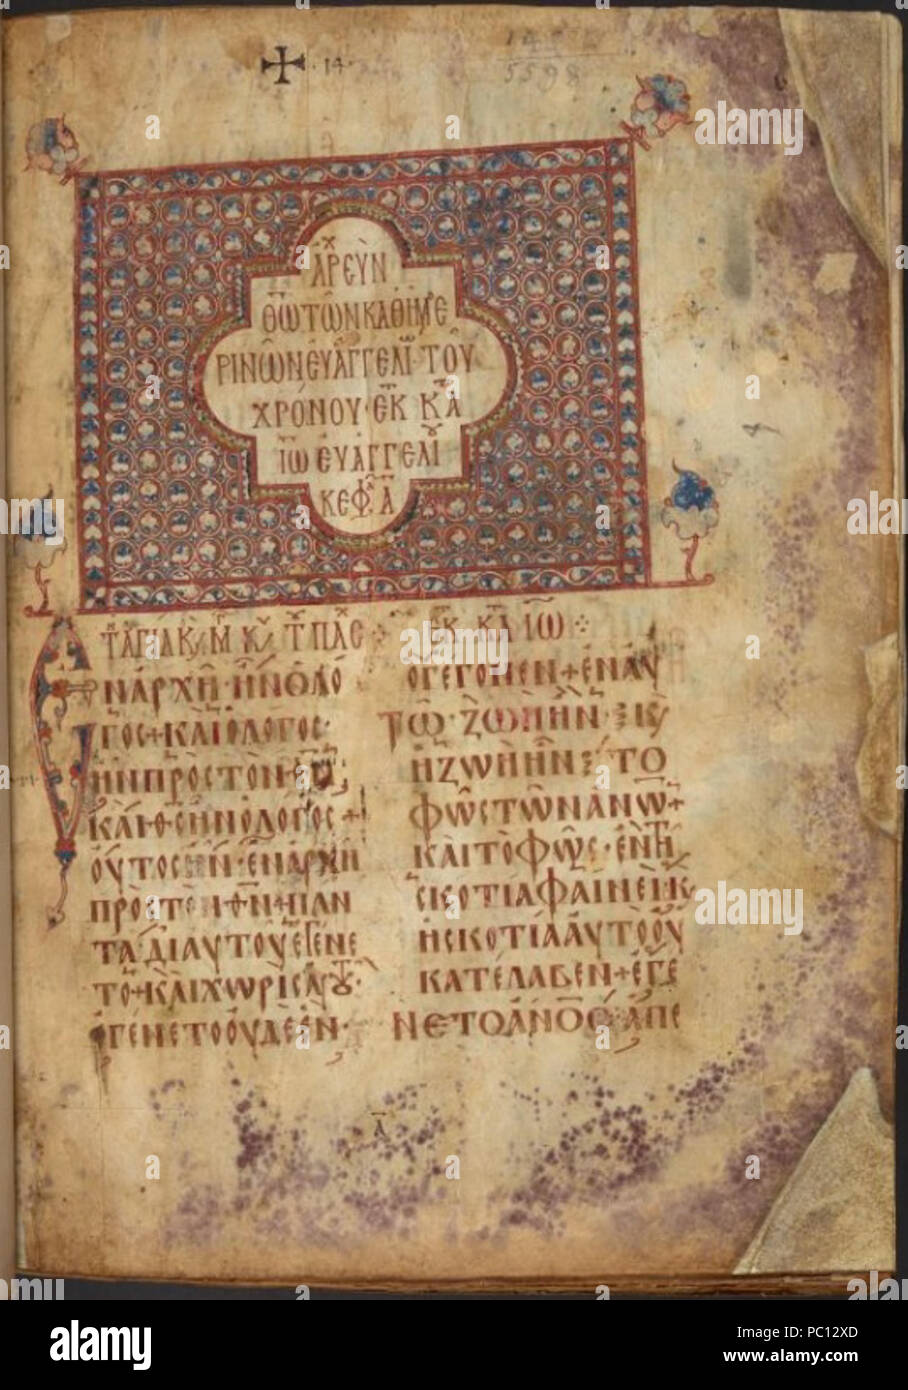 · 14 ·
5598
ἈΡΕῪΝ
ΘΩΤῶΝΚΑΘΗΜΕ
ΡΙΝῶΝΕΥΑΓΓΕΛΙ ΤΟΥ
ΧΡΌΝΟΥ· ἘΚ ΚΑ
ΙΩ ΕΥΑΓΓΕΛΙ
ΚΕΦ Α
ΤΠΑΣ ἘΚ ΚΑ ΙΩ
ΝΑΡΧΗ·ΗΝΟΛΟ
ΓΟΣ+ΚΑΙΟΛΟΓΟΣ·
ΗΝΠΡΟΣΤΟΝ
ΚΑΙΘΣΗΝΟΛΟΓΟΣ+
ΟΥΤΟΣΗΝ·ΕΝΑΡΧΗ
ΠΡΟΣΤΟΝΘΝ+ΠΑΝ
ΤΑ·ΔΙΑΥΤΟΥΕΓΕΝΕ
ΤΟ+ΚΑΙΧΩΡΙΣΑΥΤȢ·
ΕΓΕΝΕΤΟΟΥΔΕΕΝ·
ΟΓΕΓΟΝΕΝ+ΕΝΑΥ
ΤΩ·ΖΩΗΗΝ·Κ
ΗΖΩΗΗΝ ΤΟ
ΦΩΣΤΩΝΑΝΩΝ+
ΚΑΙΤΟΦΩΣ·ΕΝΤΗ
ΣΚΟΤΙΑΦΑΙΝΕΙ·Κ
ΗΣΚΟΤΙΑΑΥΤΟΟΥ
ΚΑΤΕΛΑΒΕΝ+ΕΓΕ
ΝΕΤΟΑΝΟΣ·ΑΠΕ
Α
alamy
Image ID: PC12XD
www.alamy.com